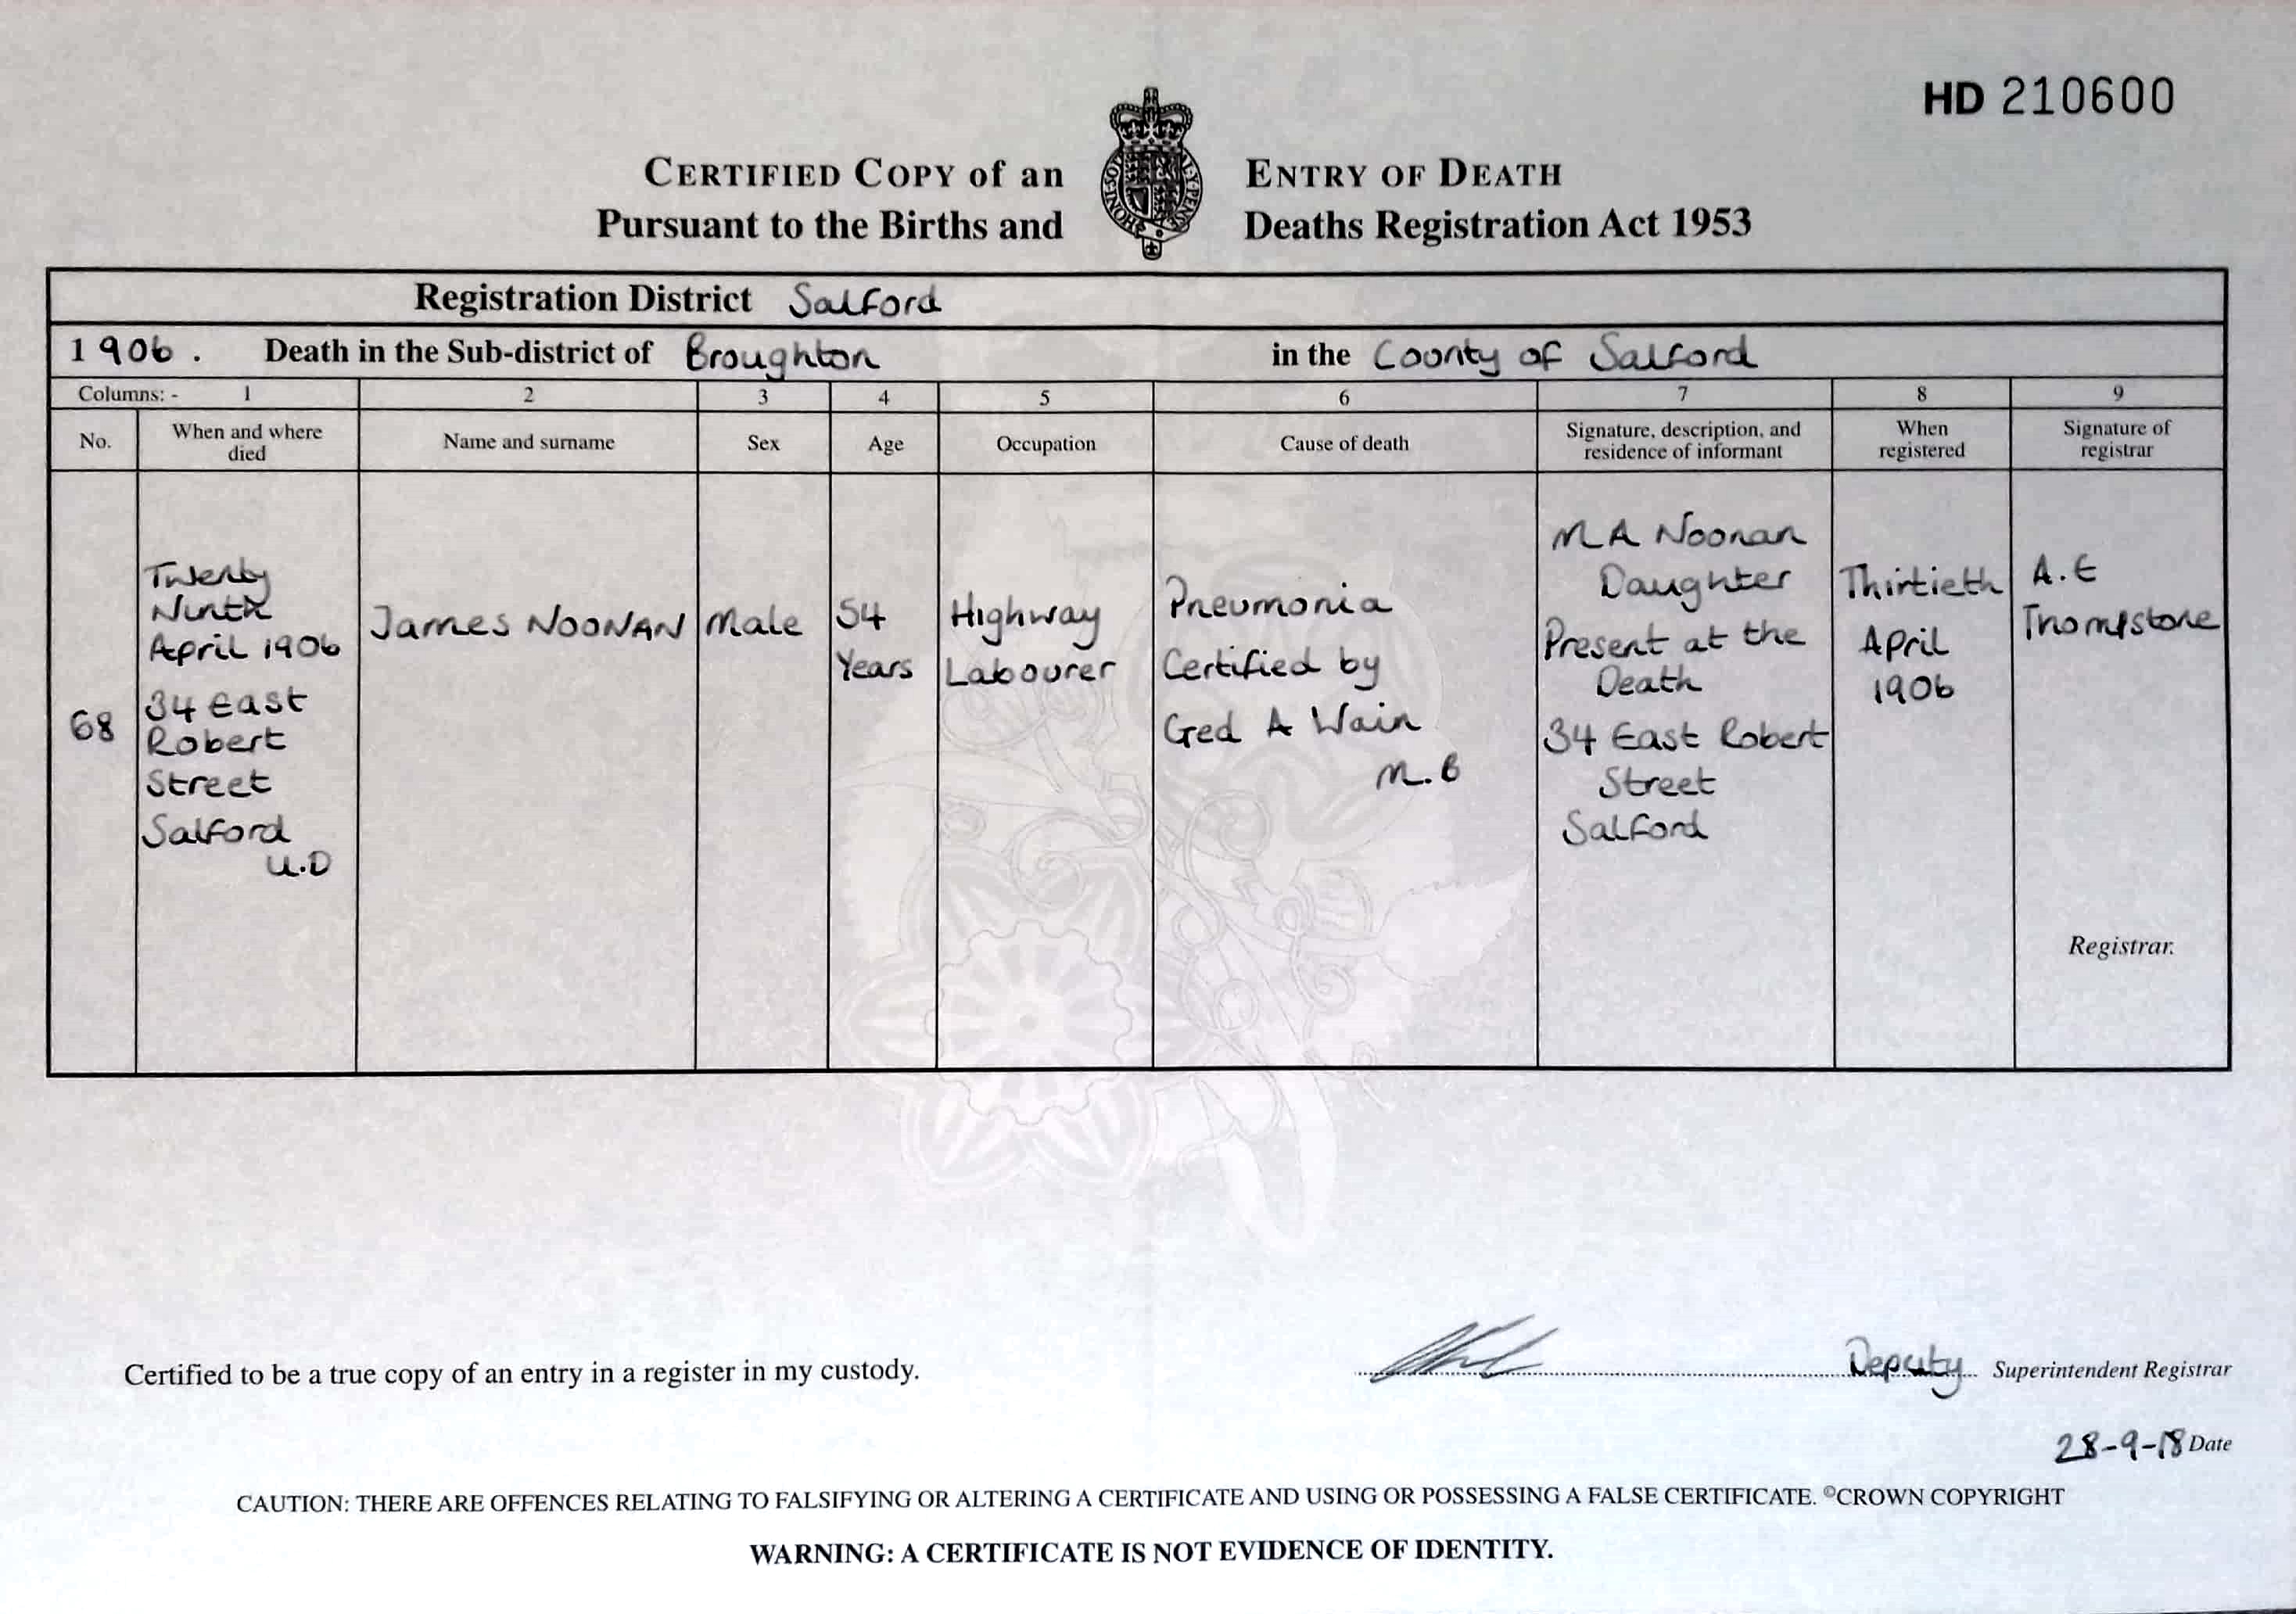 HD 210600
CERTIFIED COPY of an ENTRY OF DEATH
Pursuant to the Births and Deaths Registration Act 1953
Registration District Salford
1906. Death in the Sub-district of Broughton in the County of Salford
Columns: - 1 2 3 4 5 6 7 8 9
No.
When and where
died
Name and surname
Sex
Age
Occupation
Cause of death
Signature, description, and
residence of informant
When
registered
Signature of
registrar
68
Twenty
Ninth
April 1906
34 East
Robert
Street
Salford
U.D
James NOONAN
Male
54
Years
Highway
Labourer
Pneumonia
Certified by
Ged A Wain
M.B
M A Noonan
Daughter
Present at the
Death
34 East Robert
Street
Salford
Thirtieth
April
1906
A.E
Thompstone
Registrar.
Certified to be a true copy of an entry in a register in my custody.
Deputy Superintendent Registrar
28-9-18 Date
CAUTION: THERE ARE OFFENCES RELATING TO FALSIFYING OR ALTERING A CERTIFICATE AND USING OR POSSESSING A FALSE CERTIFICATE. ©CROWN COPYRIGHT
WARNING: A CERTIFICATE IS NOT EVIDENCE OF IDENTITY.